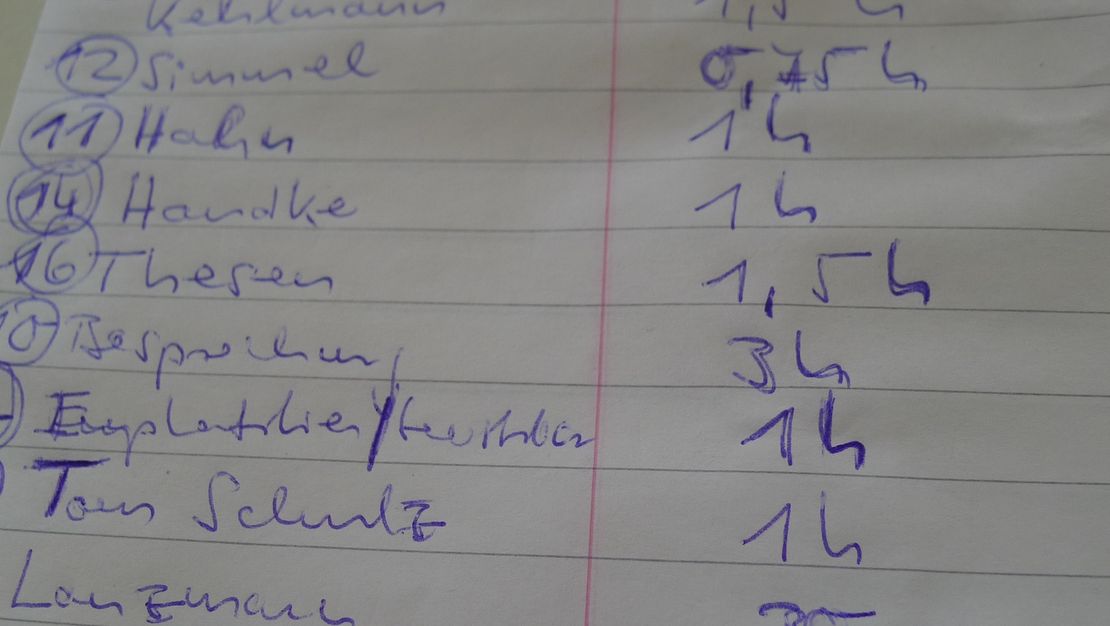 Kehlmann 1,5 h
12 Simmel 0,75 h
11 Hahn 1 h
14 Handke 1 h
16 Thesen 1,5 h
10 Besprechung 3 h
1 h
Tom Schulz 1 h
Lanzmann